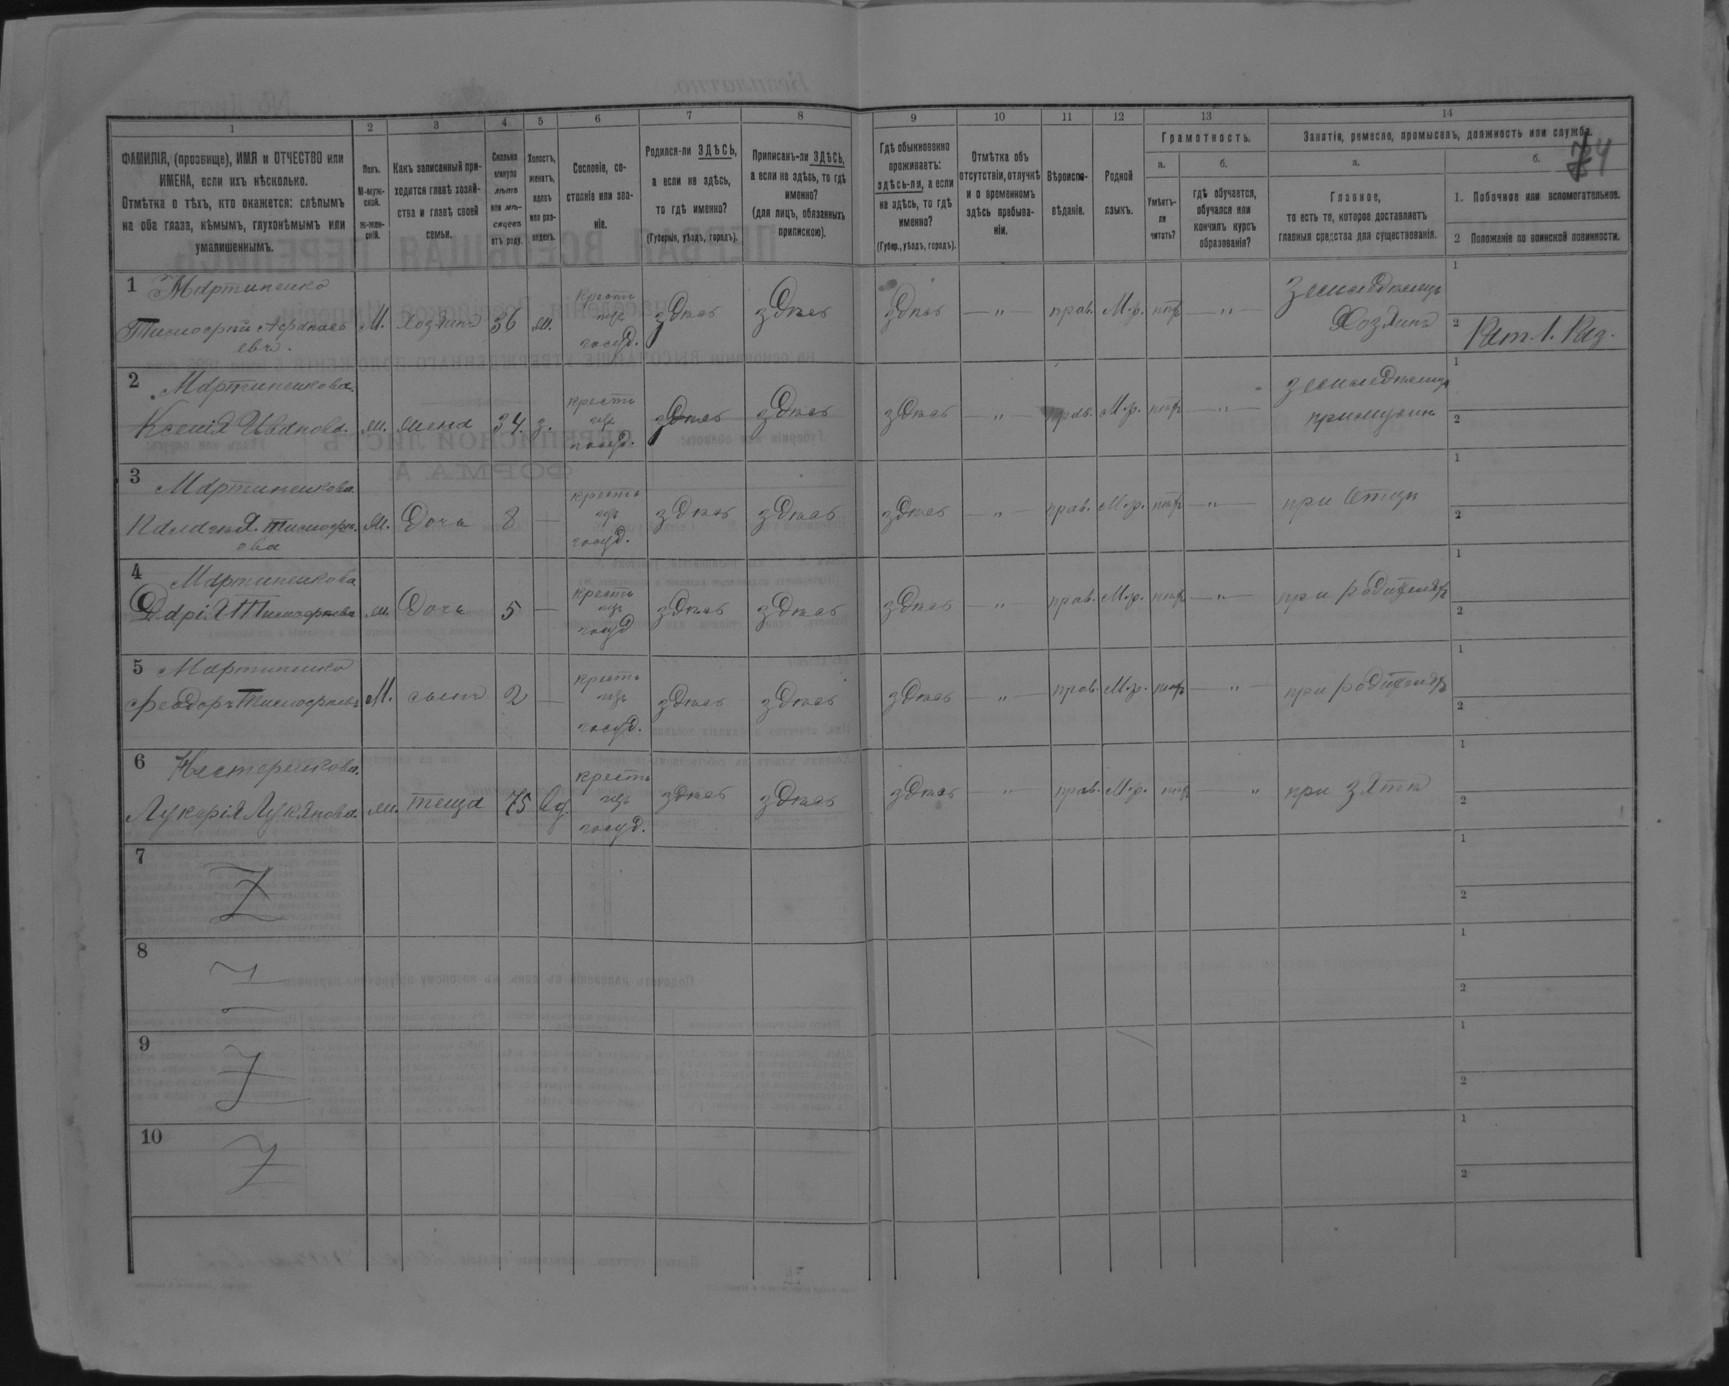 74
1
2
3
4
5
6
7
8
9
10
11
12
13
14
ФАМИЛІЯ, (прозвище), ИМЯ и ОТЧЕСТВО или
ИМЕНА, если ихъ нѣсколько.
Отмѣтка о тѣхъ, кто окажется: слѣпымъ
на оба глаза, нѣмымъ, глухонѣмымъ или
умалишеннымъ.
Полъ.
М-муж-
ской.
ж-жен-
скій.
Какъ записанный при-
ходится главѣ хозяй-
ства и главѣ своей
семьи.
Сколько
минуло
лѣтъ
или мѣ-
сяцевъ
отъ роду.
Холостъ,
женатъ,
вдовъ
или раз-
веденъ.
Сословіе, со-
стояніе или зва-
ніе.
Родился-ли ЗДѢСЬ,
а если не здѣсь,
то гдѣ именно?
(Губернія, уѣздъ, городъ).
Приписанъ-ли ЗДѢСЬ,
а если не здѣсь, то гдѣ
именно?
(для лицъ, обязанныхъ
припискою).
Гдѣ обыкновенно
проживаетъ:
здѣсь-ли, а если
не здѣсь, то гдѣ
именно?
(Губер., уѣздъ, городъ).
Отмѣтка объ
отсутствіи, отлучкѣ
и о временномъ
здѣсь пребыва-
ніи.
Вѣроиспо-
вѣданіе.
Родной
языкъ.
Грамотность.
а.
Умѣетъ-
ли
читать?
б.
гдѣ обучается,
обучался или
кончилъ курсъ
образованія?
Занятіе, ремесло, промыселъ, должность или служба.
а.
Главное,
то есть то, которое доставляетъ
главныя средства для существованія.
б.
1. Побочное или вспомогательное.
2 Положеніе по воинской повинности.
1 Мартиненко
Тимофей Афанась
евъ. М. Хозяинъ 36 ж. кресть
госуд. здѣсь здѣсь здѣсь — „ — прав. М.р. нѣт — „ — Земледѣлецъ
Хозяинъ
1
2 Рат. 1. Раз.
2 Мартиненкова
Ксенія Иванова. ж. жена 34. з. кресть
госуд. здѣсь здѣсь здѣсь — „ — прав. М.р. нѣт — „ —
при мужѣ
1
2
3 Мартиненкова
Тимофе
ова ж. Дочь 8 — кресть
госуд. здѣсь здѣсь здѣсь — „ — прав. М.р. нѣт — „ — при Отцѣ
1
2
4 Мартиненкова
Дарія Тимофеева ж. Дочь 5 — кресть
госуд здѣсь здѣсь здѣсь — „ — прав. М.р. нѣт — „ — при родителѣ
1
2
5 Мартиненко
Феодоръ Тимофеевъ М. сынъ 2 — кресть
госуд. здѣсь здѣсь здѣсь — „ — прав. М.р. нѣт — „ — при родителѣ
1
2
6 Нестеренкова
Лукерія Лукянова. ж. теща 75 вд. кресть
госуд. здѣсь здѣсь здѣсь — „ — прав. М.р. нѣт — „ при зятѣ
1
2
7 Z
1
2
8
1
2
9 Z
1
2
10 Z
1
2